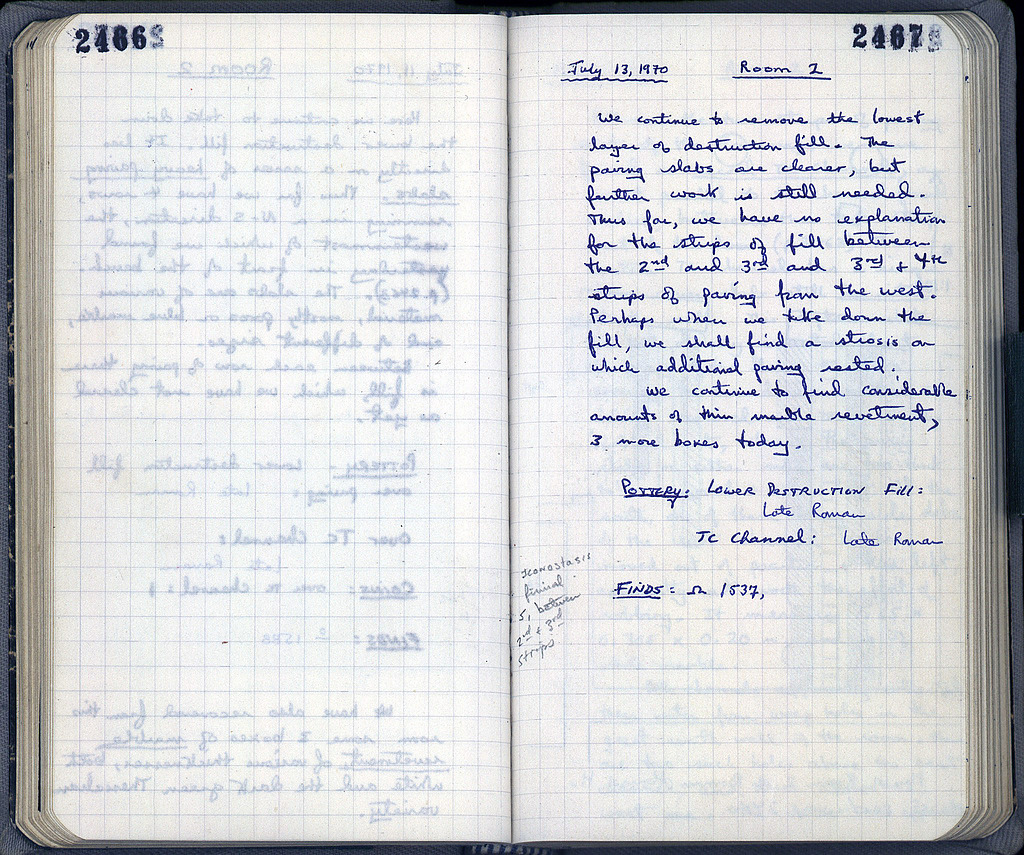 2466
2467
July 13, 1970 Room 2
We continue to remove the lowest
layer of destruction fill. The
paving slabs are clearer, but
further work is still needed.
Thus far, we have no explanation
for the strips of fill between
the 2nd and 3rd and 3rd & 4th
strips of paving from the west.
Perhaps when we take down the
fill, we shall find a strosis on
which additional paving rested.
We continue to find considerable
amounts of thin marble revetment,
3 more boxes today.
Pottery: Lower Destruction Fill:
Late Roman
TC Channel: Late Roman
Iconostasis
finial
S, between
2nd & 3rd
strips
Finds: Ω 1537,